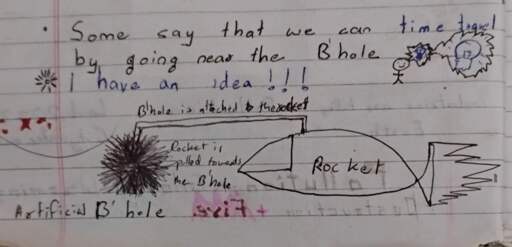 Some say that we can time travel
by going near the B'hole
I have an idea !!!
B'hole is attached to the rocket
Rocket is
pulled towards
the B'hole
Rocket
Artificial B'hole